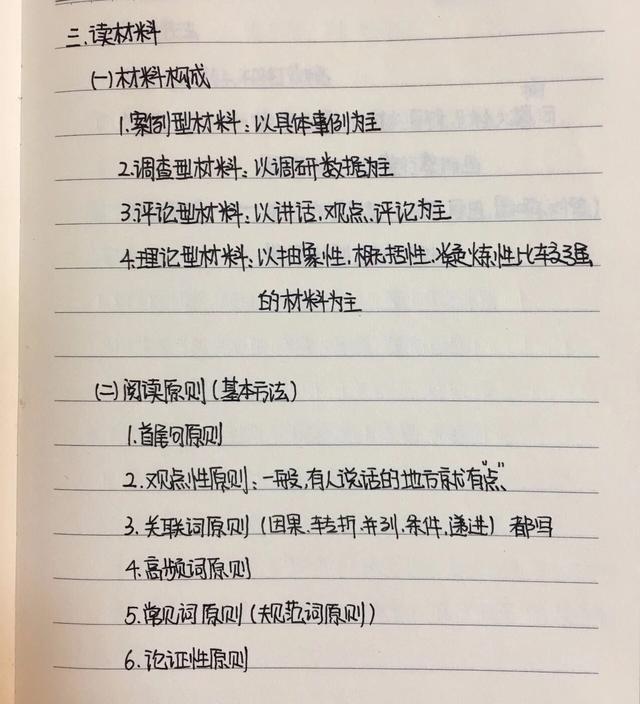 三.读材料
(一)材料构成
1.案例型材料:以具体事例为主
2.调查型材料:以调研数据为主
3.评论型材料:以讲话.观点.评论为主
4.理论型材料:以抽象性.概括性.凝炼性比较强
的材料为主
(二)阅读原则(基本方法)
1.首尾句原则
2.观点性原则:一般,有人说话的地方就有“点”
3.关联词原则(因果.转折.并列.条件.递进)都写
4.高频词原则
5.常见词原则(规范词原则)
6.论证性原则